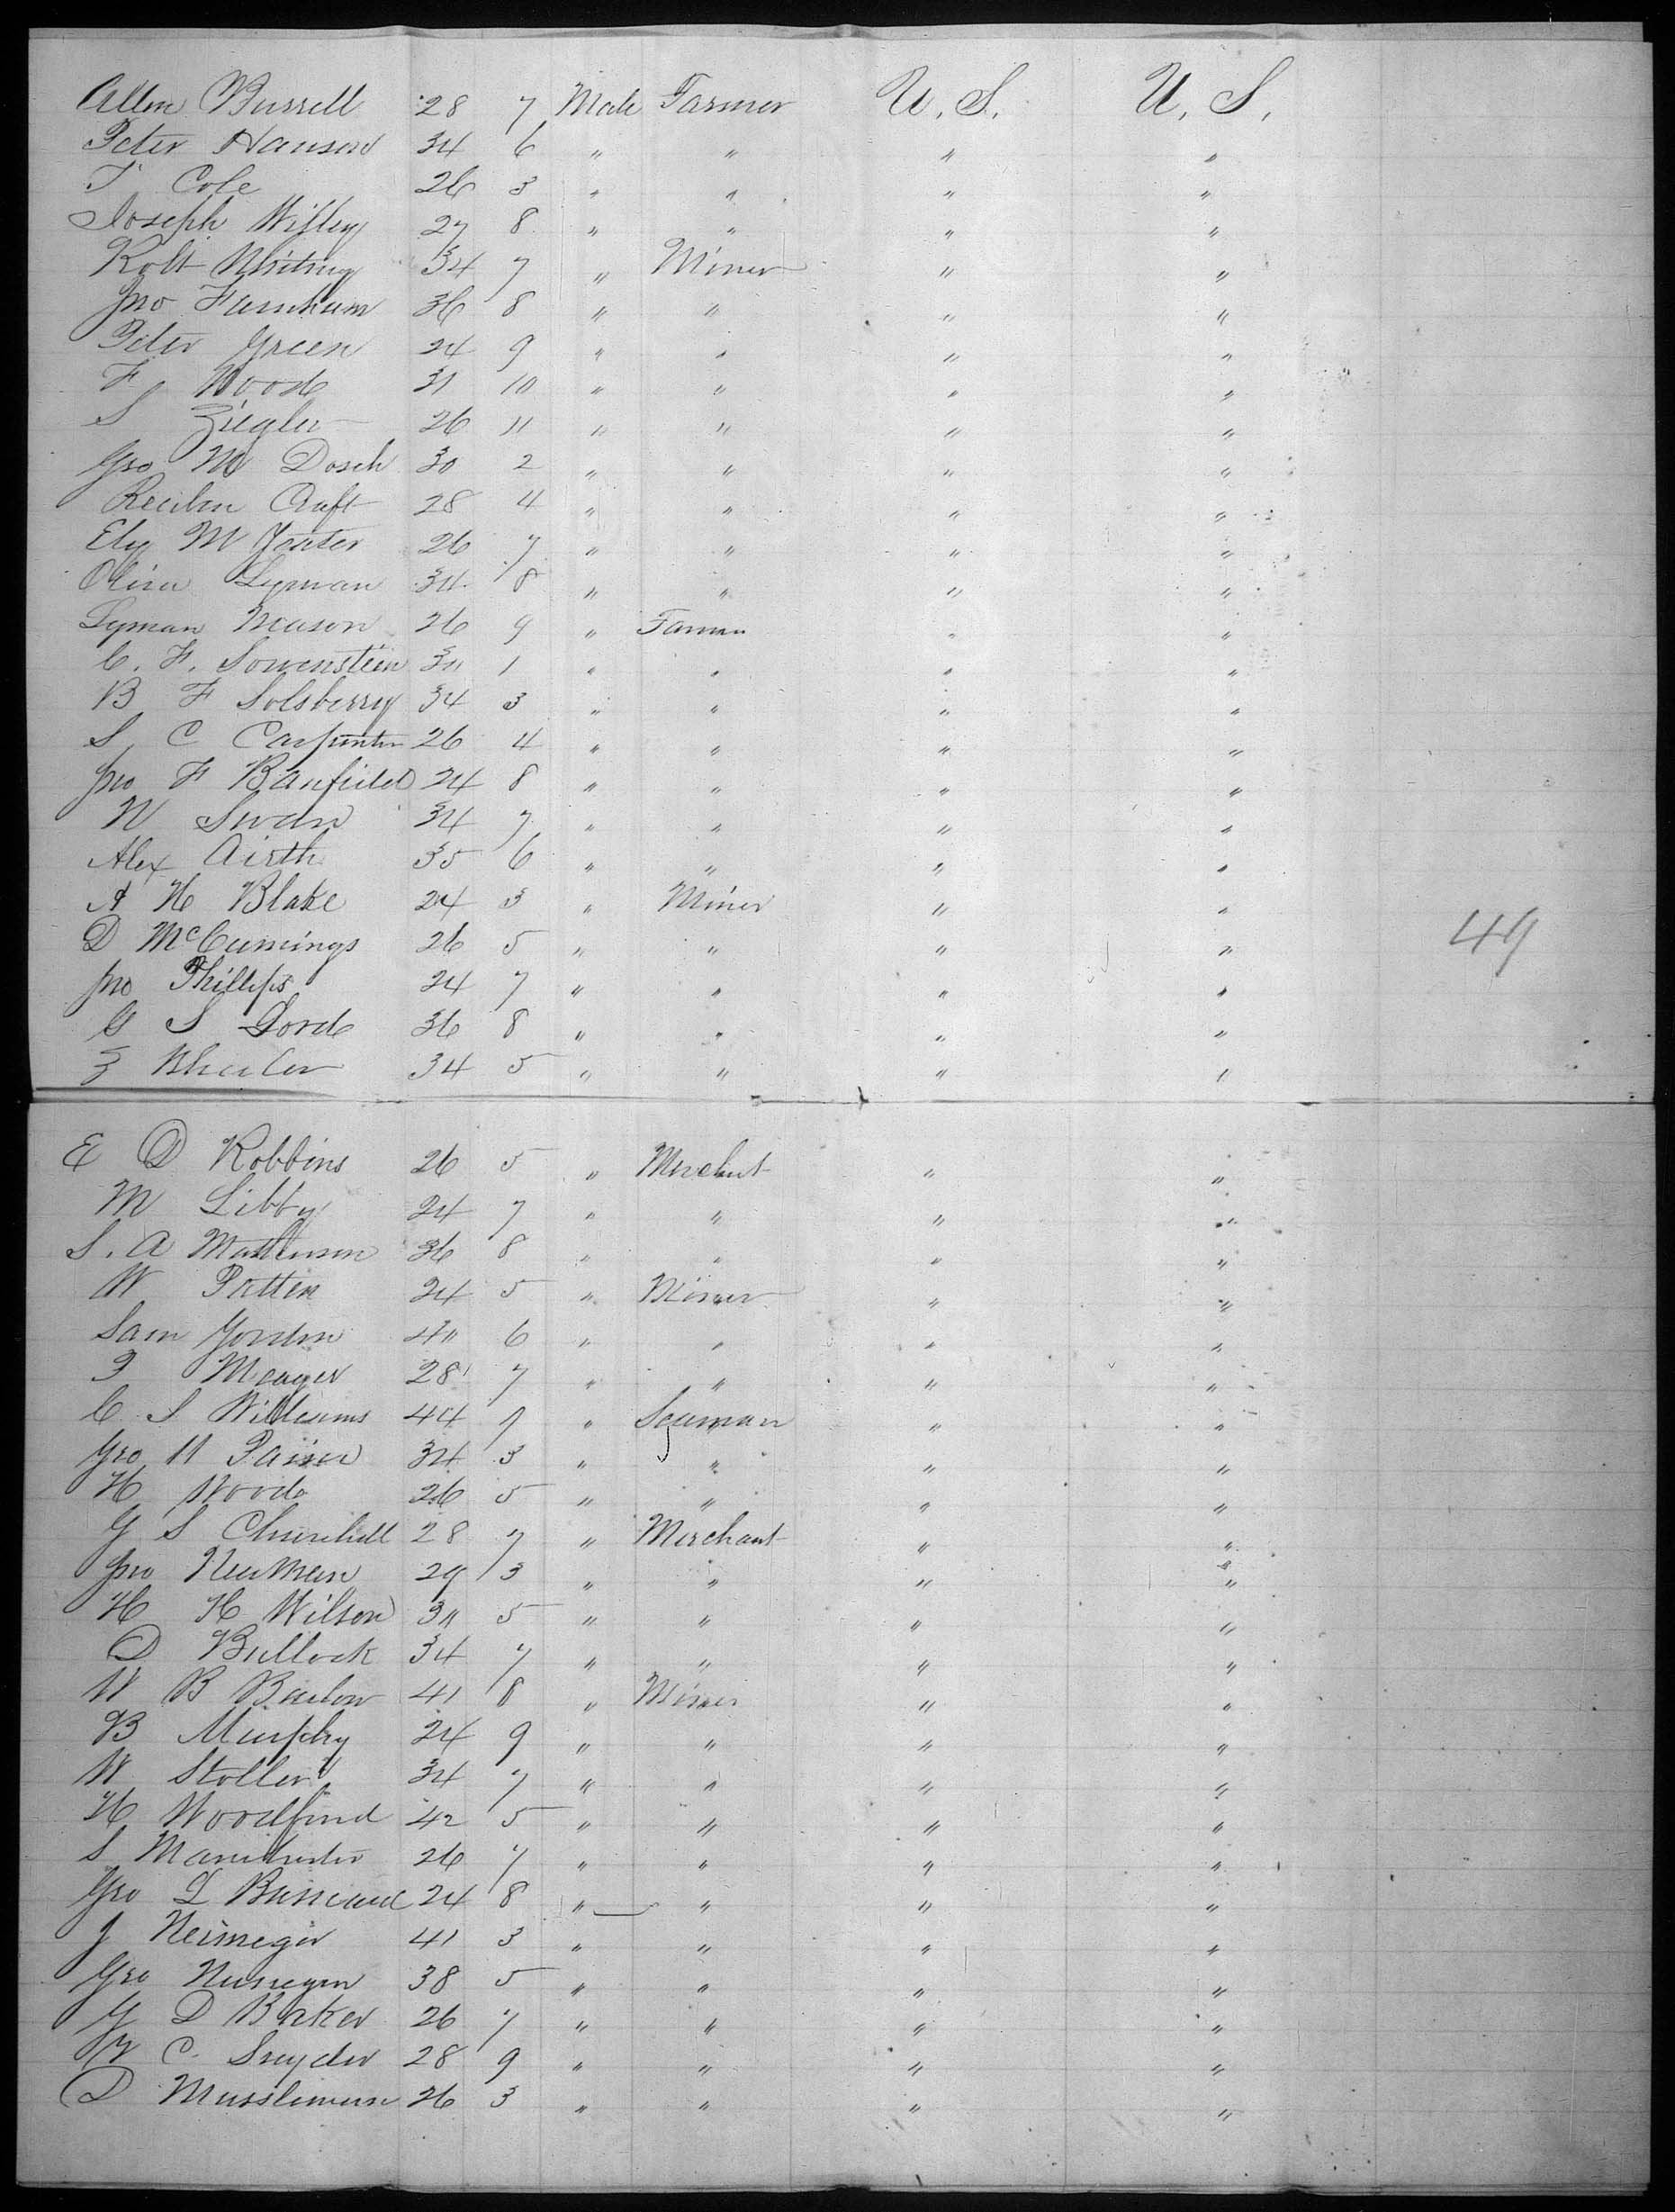 Allen Burrell 28 7 Male Farmer U. S. U. S.
Peter Hanson 34 6 " " " "
T Cole 26 3 " " " "
Joseph Wifley 27 8 " " " "
Robt Whiting 34 7 " Miner " "
Jno Farnham 36 8 " " " "
Peter Green 24 9 " " " "
F Wood 31 10 " " " "
S Ziegler 26 11 " " " "
Geo W Dosch 30 2 " " " "
Reuben Craft 28 4 " " " "
Ely M Yeater 26 7 " " " "
Oliver Lyman 34 8 " " " "
Lyman Mason 26 9 " Farmer " "
C. F. Sowenstein 30 1 " " " "
B F Solsberry 34 3 " " " "
S C Carpenter 26 4 " " " "
Jno F Banfield 24 8 " " " "
W Swan 34 7 " " " "
Alex Airth 35 6 " " " "
A H Blake 24 3 " Miner " "
D McCumings 26 5 " " " " 49
Jno Phillips 24 7 " " " "
G S Lord 36 8 " " " "
Z Wheeler 34 5 " " " "
E D Robbins 26 5 " Merchant " "
M Libby 24 7 " " " "
S. A Mattenson 36 8 " " " "
W Patten 24 5 " Miner " "
Sam Gordon 40 6 " " " "
P Meager 28 7 " " " "
C S Williams 44 9 " Seaman " "
Geo H 34 3 " " " "
H Woods 26 5 " " " "
G S Churchill 28 7 " Merchant " "
Jno Newman 29 3 " " " "
H H Wilson 30 5 " " " "
D Bullock 34 7 " " " "
W B Barlow 41 8 " Miner " "
B Murphy 24 9 " " " "
W Stoller 34 7 " " " "
H Woodford 42 5 " " " "
S Manchester 26 7 " " " "
Geo L 24 8 " " " "
J Neimeger 41 3 " " " "
Geo 38 5 " " " "
G D Baker 26 7 " " " "
W C. Snyder 28 9 " " " "
D Mussleman 26 3 " " " "